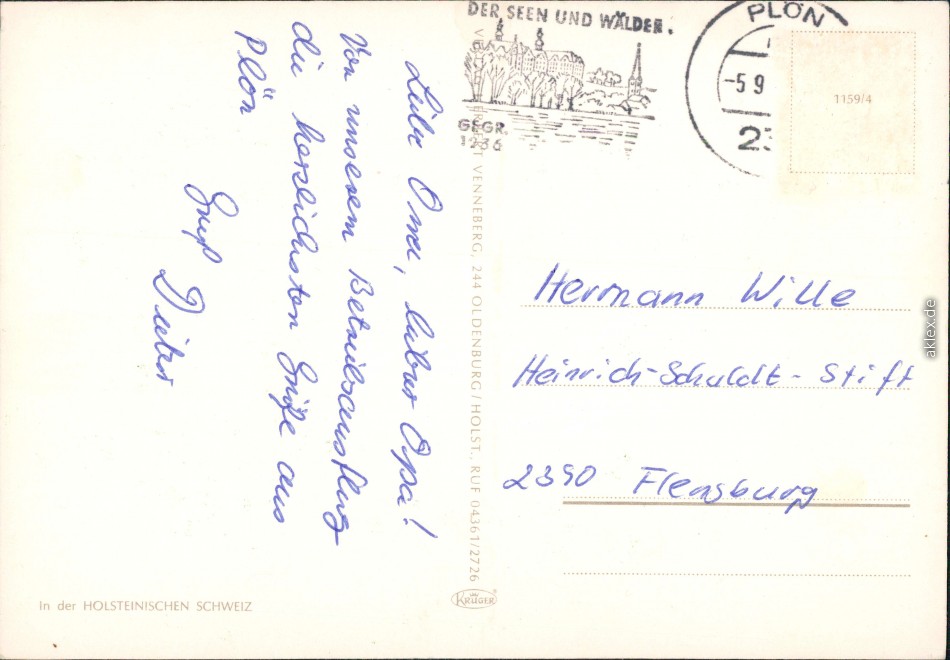 Liebe Oma, lieber Opa!
Von unserem Betriebsausflug
die herzlichsten Grüße aus
Plön
Gruß
Dieter
DER SEEN UND WÄLDER.
GEGR.
1236
PLÖN
-5 9
23
1159/4
VENNEBERG, 244 OLDENBURG/HOLST., RUF 04361/2726
Hermann Wille
Heinrich-Schuldt-Stift
2390 Flensburg
In der HOLSTEINISCHEN SCHWEIZ
KRÜGER
aklex.de